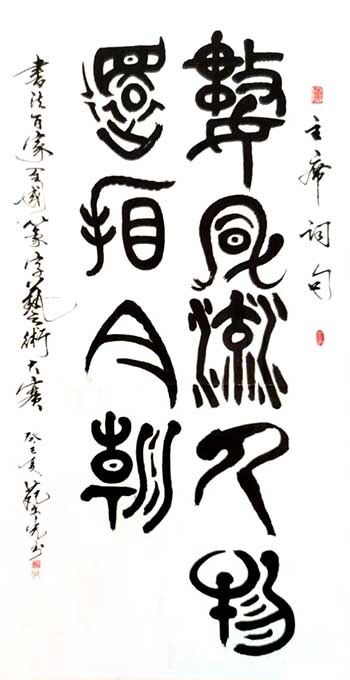 主席词句
數風流人物
還看今朝
書法百家全國篆字藝術大賽
癸巳夏